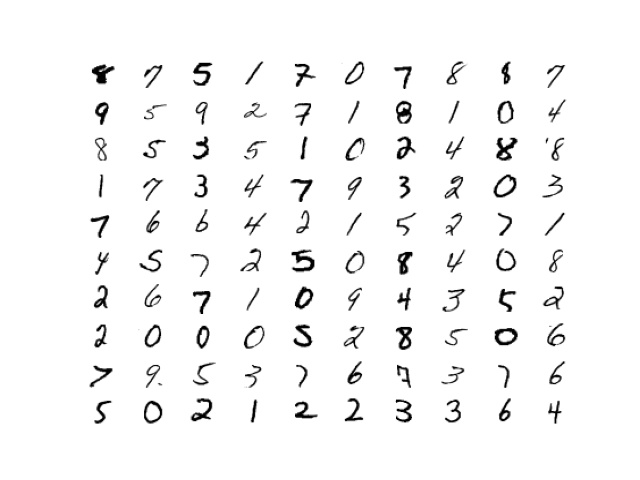 8 7 5 1 7 0 7 8 8 7
9 5 9 2 7 1 8 1 0 4
8 5 3 5 1 0 2 4 8 8
1 7 3 4 7 9 3 2 0 3
7 6 6 4 2 1 5 2 7 1
4 5 7 2 5 0 8 4 0 8
2 6 7 1 0 9 4 3 5 2
2 0 0 0 5 2 8 5 0 6
7 9 5 3 7 6 7 3 7 6
5 0 2 1 2 2 3 3 6 4